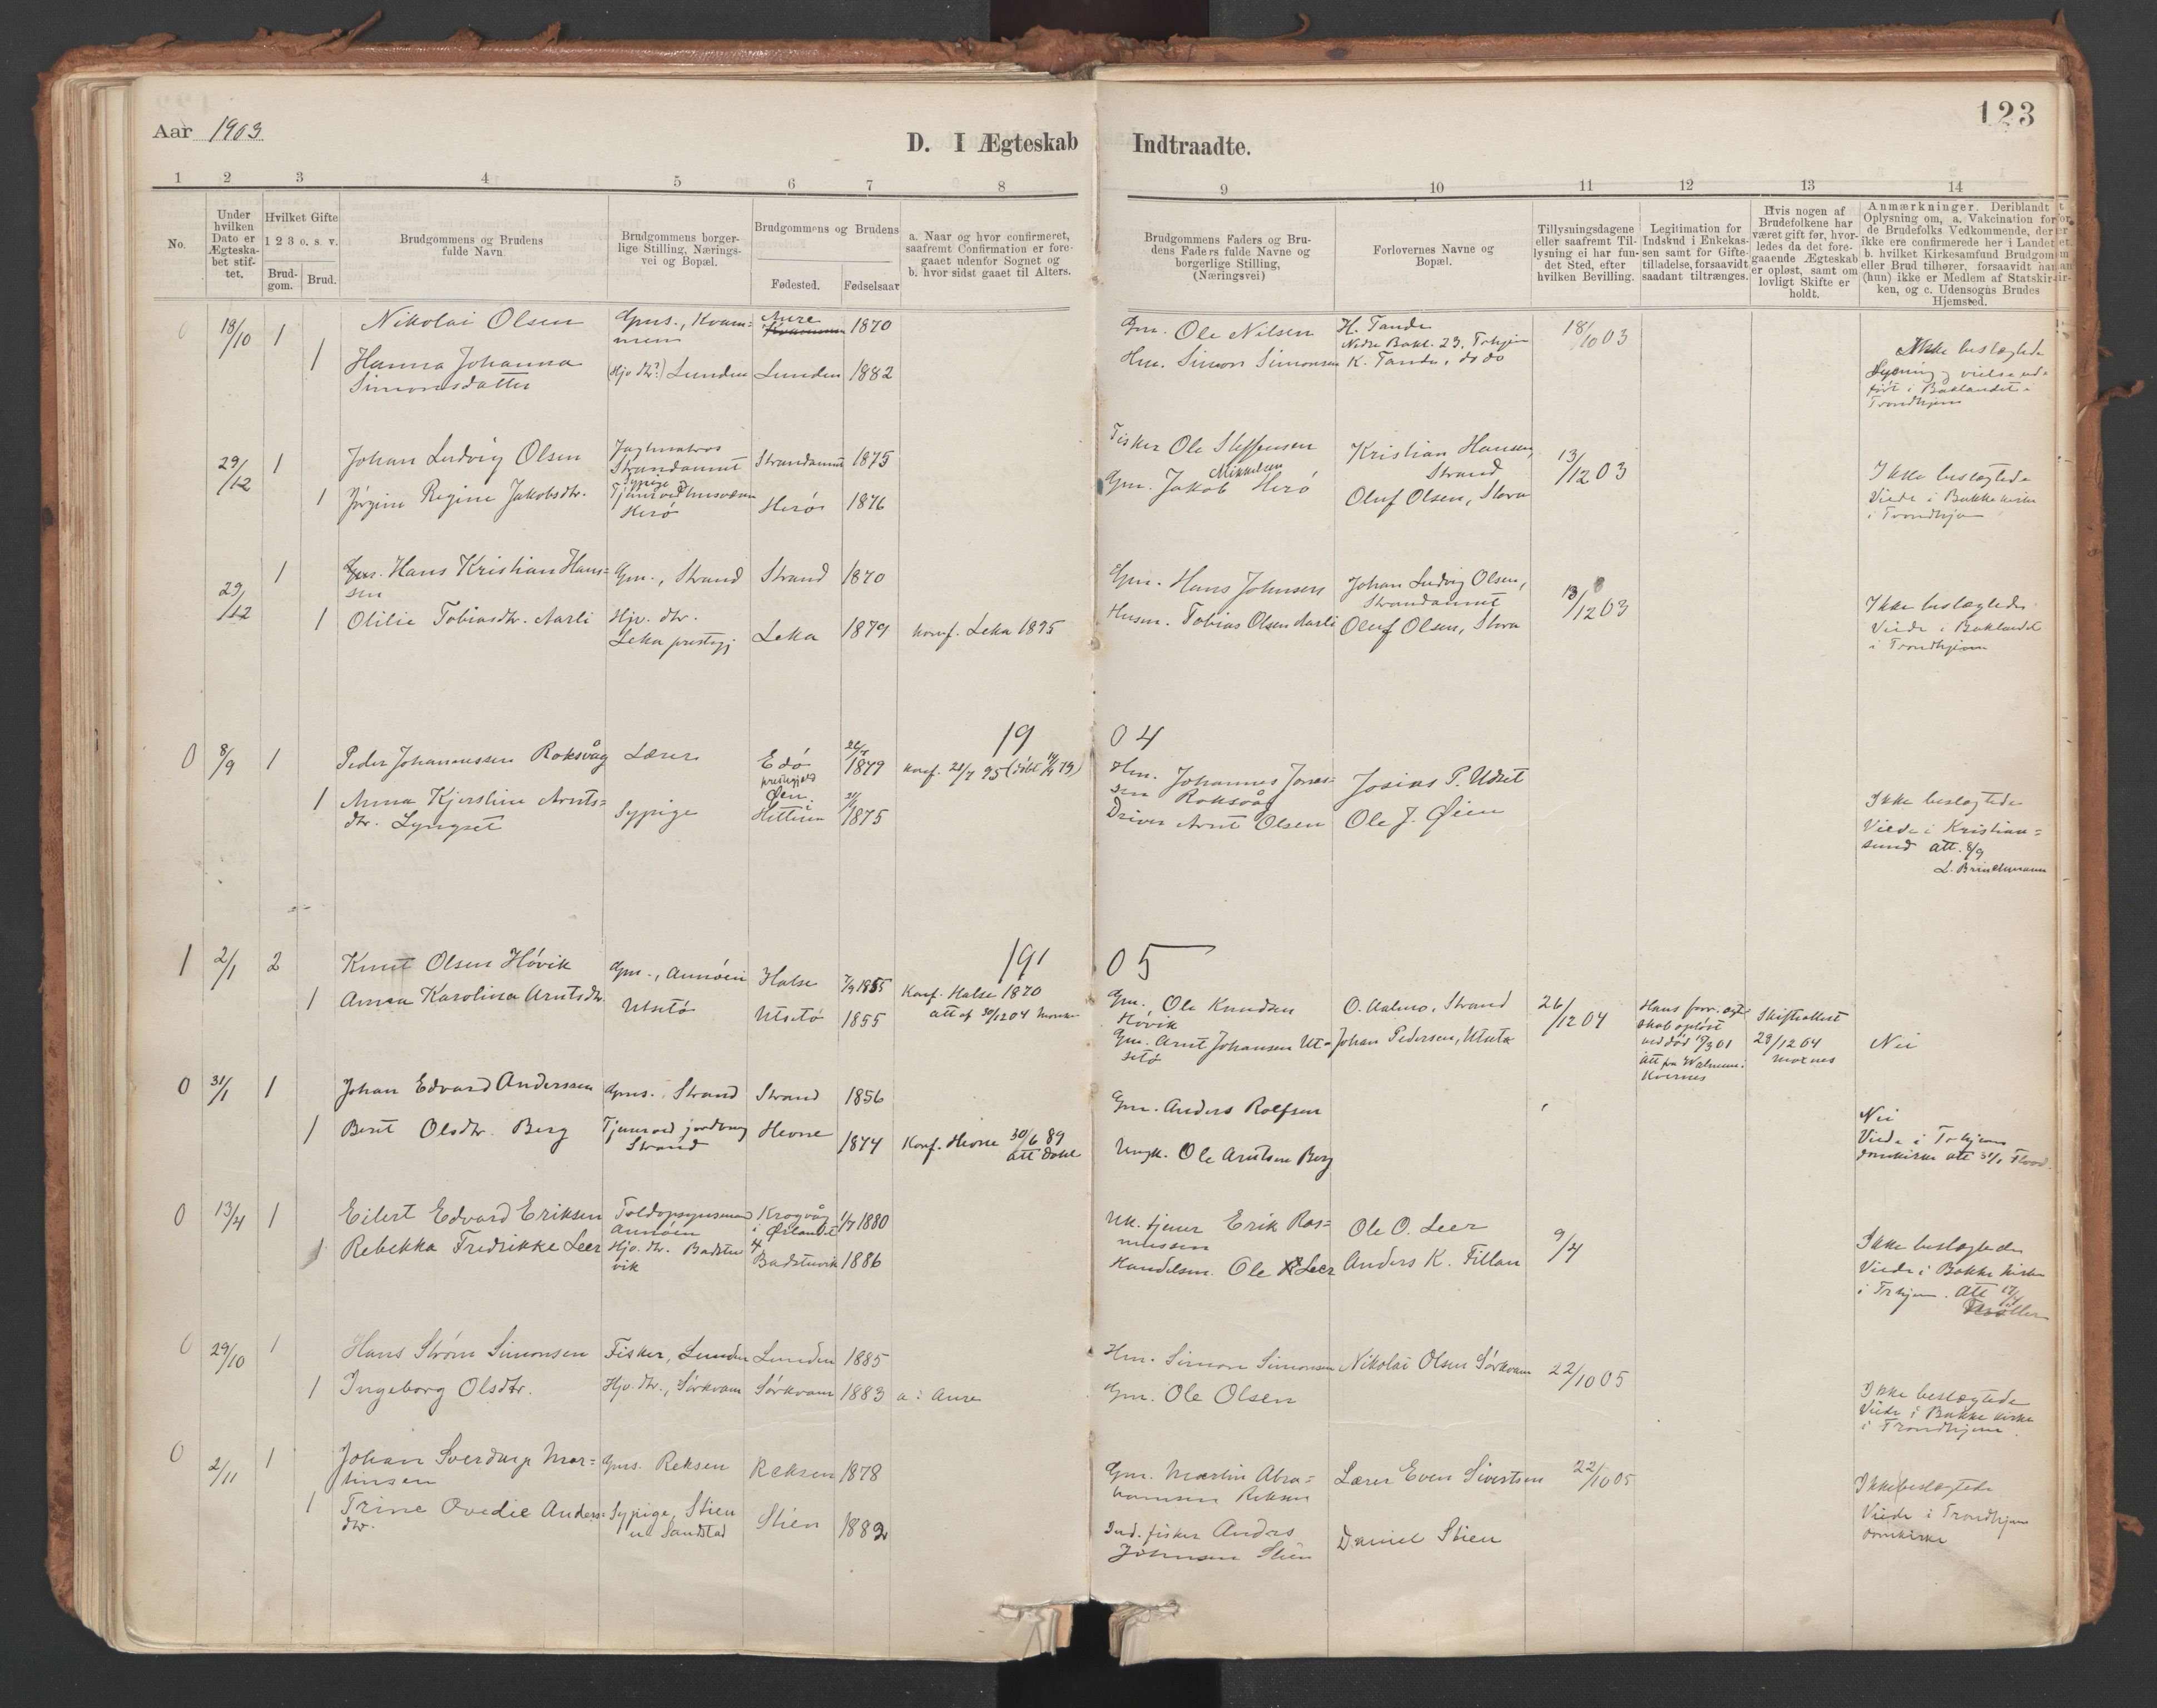 123
Aar 1903
D. I Ægteskab Indtraadte.
1 2 3 4 5 6 7 8 9 10 11 12 13 14
No.
Under hvilken Dato er Ægteskabet stiftet.
Hvilket Gifte
1 2 3 o. s. v.
Brudgom. Brud.
Brudgommens og Brudens fulde Navn.
Brudgommens borgerlige Stilling, Næringsvei og Bopæl.
Brudgommens og Brudens
Fødested. Fødselsaar
a. Naar og hvor confirmeret, saafremt Confirmation er foregaaet udenfor Sognet og b. hvor sidst gaaet til Alters.
Brudgommens Faders og Brudens Faders fulde Navne og borgerlige Stilling, (Næringsvei)
Forlovernes Navne og Bopæl.
Tillysningsdagene eller saafremt Tillysning ei har fundet Sted, efter hvilken Bevilling.
Legitimation for Indskud i Enkekassen samt for Giftetilladelse, forsaavidt saadant tiltrænges.
Hvis nogen af Brudefolkene har været gift før, hvorledes da det foregaaende Ægteskab er opløst, samt om lovligt Skifte er holdt.
Anmærkninger. Deriblandt Oplysning om, a. Vakcination for de Brudefolks Vedkommende, der ikke ere confirmerede her i Landet b. hvilket Kirkesamfund Brudgom eller Brud tilhører, forsaavidt han (hun) ikke er Medlem af Statskirken, og c. Udensogns Brudes Hjemsted.
0 18/10 1 Nikolai Olsen Gms., Kvammen Aure 1870 Gm. Ole Nilsen H. Tande 18/10 03 Ikke beslægtede
Nedre Bakl. 23. Trhjem
1 Hanna Johanna Simonsdatter (Hjv dtr?) Lunden Lunden 1882 Hm. Simon Simonsen K. Tande, do do Lysning og vielse udført i Baklandet i Trondhjem
29/12 1 Johan Ludvig Olsen Strandamut Strandamut 1875 Fisker Ole Steffensen Kristian Hansen, Strand 13/12 03 Ikke beslægtede
1 Jørgine Regine Jakobsdtr. Herø Herø 1876 Gm. Jakob Mikkelsen Herø Oluf Olsen, Slora Viede i Bakke kirke i Trondhjem
29/12 1 Hans Kristian Hansen Gm., Strand Strand 1870 Gm. Hans Johnsen Johan Ludvig Olsen, Strandamut 13/12 03 Ikke beslægtede
1 Olilie Tobiasdtr. Aarli Hjv. dtr. Leka prestegj Leka 1879 konf. Leka 1895 Husm. Tobias Olsen Aarli Oluf Olsen, Slora Viede i Baklandet i Trondhjem
19 04
0 8/9 1 Peder Johannessen Roksvåg Lærer Edø prestegjeld 1879 konf. 28/7 95 Hm. Johannes Jonassen Roksvåg Josias P. Udset Ikke beslægtede
1 Anna Kjerstine Arntsdtr. Lyngset Sypige Øen i Hitteren 1875 Driver Arnt Olsen Ole J. Øien Viede i Kristiansund att. 8/9
L. Brinchmann
19 05
1 2/1 2 Knut Olsen Høvik Gm., Aunøen Halse 7/9 1855 Konf. Halse 1870 Gm. Ole Knudsen Høvik O. Aalmo, Strand 26/12 04 Hans forr. ægteskab opløst ved død Skifteattest 29/12 04 Nei
1 Anna Karolina Arntsdtr. Utsetø Utsetø 1855 att af 30/12 04 Gm. Arnt Johansen Utsetø Johan Pedersen, Utsetø Kvernes
0 31/1 1 Johan Edvard Anderssen Gms. Strand Strand 1856 Gm. Anders Rolfsen Nei
1 Berit Olsdtr. Berg Tjener ved jordbrug Strand Hevne 1874 Konf. Hevne 30/6 89 att Dahl Ungk. Ole Arntsen Berg Viede i Trhjems domkirke att 31/1
0 13/4 1 Eilert Edvard Eriksen Toldopsynsmand Aunøen Krogvåg i Ørlandet 1/7 1880 Uk. tjener Erik Rasmussen Ole O. Leer 9/4 Ikke beslægtede
1 Rebekka Fredrikke Leer Hjv. dtr. Badstuvik Badstuvik 1886 Handelsm. Ole Leer Anders K. Fillan Viede i Bakke kirke i Trhjem. Att
0 29/10 1 Hans Strøm Simonsen Fisker, Lunden Lunden 1885 Hm. Simon Simonsen Nikolai Olsen Sørkvam 22/10 05 Ikke beslægtede
1 Ingeborg Olsdtr. Hjv. dtr., Sørkvam Sørkvam 1883 a: Aure Gm. Ole Olsen Viede i Bakke kirke i Trondhjem
0 2/11 1 Johan Sverdrup Martinsen Gms. Reksen Reksen 1878 Gm. Martin Abrahamsen Reksen Lærer Even Sivertsen 22/10 05 Ikke beslægtede
1 Trine Ovedie Andersdtr. Sypige, Stien Sandstad Stien 1882 Ind. fisker Anders Johnsen Stien Daniel Stien Viede i Trondhjems domkirke